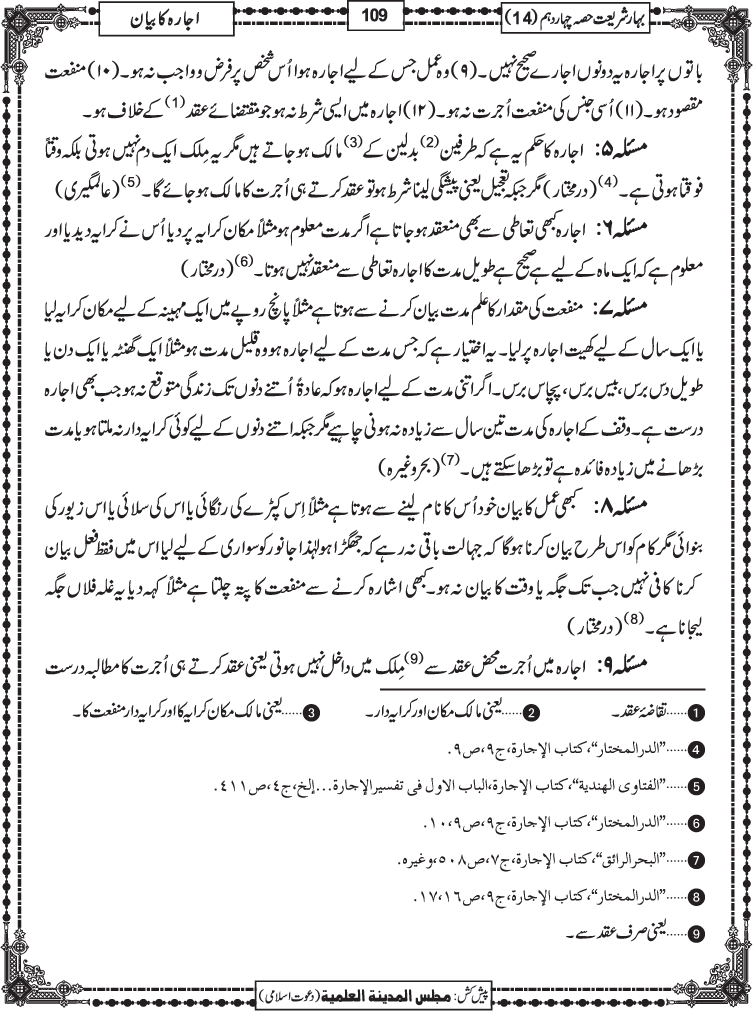 بہار شریعت حصہ چہاردہم (14)
109
اجارہ کا بیان
باتوں پر اجارہ یہ دونوں اجارے صحیح نہیں۔ (۹) وہ عمل جس کے لیے اجارہ ہوا اُس شخص پر فرض و واجب نہ ہو۔ (۱۰) منفعت
مقصود ہو۔ (۱۱) اُسی جنس کی منفعت اُجرت نہ ہو۔ (۱۲) اجارہ میں ایسی شرط نہ ہو جو مقتضائے عقد (1) کے خلاف ہو۔
مسئلہ ۵: اجارہ کا حکم یہ ہے کہ طرفین (2) بدلین کے (3) مالک ہو جاتے ہیں مگر یہ مِلک ایک دم نہیں ہوتی بلکہ وقتاً
فوقتا ہوتی ہے۔ (4) (درمختار) مگر جبکہ تعجیل یعنی پیشگی لینا شرط ہو تو عقد کرتے ہی اُجرت کا مالک ہو جائے گا۔ (5) (عالمگیری)
مسئلہ ۶: اجارہ کبھی تعاطی سے بھی منعقد ہو جاتا ہے اگر مدت معلوم ہو مثلاً مکان کرایہ پر دیا اُس نے کرایہ دیدیا اور
معلوم ہے کہ ایک ماہ کے لیے ہے صحیح ہے طویل مدت کا اجارہ تعاطی سے منعقد نہیں ہوتا۔ (6) (درمختار)
مسئلہ ۷: منفعت کی مقدار کا علم مدت بیان کرنے سے ہوتا ہے مثلاً پانچ روپے میں ایک مہینہ کے لیے مکان کرایہ لیا
یا ایک سال کے لیے کھیت اجارہ پر لیا۔ یہ اختیار ہے کہ جس مدت کے لیے اجارہ ہو وہ قلیل مدت ہو مثلاً ایک گھنٹہ یا ایک دن یا
طویل دس برس، بیس برس، پچاس برس۔ اگر اتنی مدت کے لیے اجارہ ہو کہ عادۃً اُتنے دنوں تک زندگی متوقع نہ ہو جب بھی اجارہ
درست ہے۔ وقف کے اجارہ کی مدت تین سال سے زیادہ نہ ہونی چاہیے مگر جبکہ اتنے دنوں کے لیے کوئی کرایہ دار نہ ملتا ہو یا مدت
بڑھانے میں زیادہ فائدہ ہے تو بڑھا سکتے ہیں۔ (7) (بحر وغیرہ)
مسئلہ ۸: کبھی عمل کا بیان خود اُس کا نام لینے سے ہوتا ہے مثلاً اِس کپڑے کی رنگائی یا اس کی سلائی یا اس زیور کی
بنوائی مگر کام کو اس طرح بیان کرنا ہوگا کہ جہالت باقی نہ رہے کہ جھگڑا ہو لہٰذا جانور کو سواری کے لیے لیا اس میں فقط فعل بیان
کرنا کافی نہیں جب تک جگہ یا وقت کا بیان نہ ہو۔ کبھی اشارہ کرنے سے منفعت کا پتہ چلتا ہے مثلاً کہہ دیا یہ غلہ فلاں جگہ
لیجانا ہے۔ (8) (درمختار)
مسئلہ ۹: اجارہ میں اُجرت محض عقد سے (9) مِلک میں داخل نہیں ہوتی یعنی عقد کرتے ہی اُجرت کا مطالبہ درست
1 ......تقاضۂ عقد۔ 2 ......یعنی مالک مکان اور کرایہ دار۔ 3 ......یعنی مالک مکان کرایہ کا اور کرایہ دار منفعت کا۔
4 ......”الدرالمختار“، کتاب الإجارة، ج۹، ص۹.
5 ......”الفتاوی الهندیة“، کتاب الإجارة، الباب الاول فی تفسیر الإجارة...إلخ، ج٤، ص٤١١.
6 ......”الدرالمختار“، کتاب الإجارة، ج۹، ص۹، ۱۰.
7 ......”البحرالرائق“، کتاب الإجارة، ج۷، ص٥٠٨، وغیرہ.
8 ......”الدرالمختار“، کتاب الإجارة، ج۹، ص۱٦، ۱۷.
9 ......یعنی صرف عقد سے۔
پیش کش: مجلس المدینة العلمیة (دعوت اسلامی)